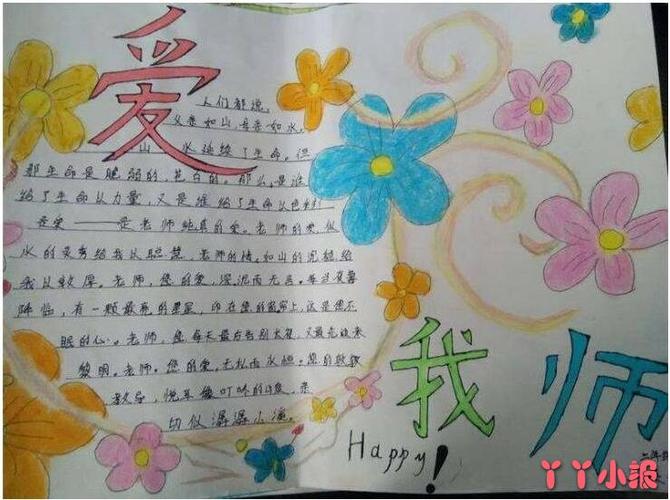 爱
人们都说。
父亲如山，母亲如水。
山 水 延续了生命。但
那生命是脆弱的，苍白的。那么，是谁
给了生命以力量，又是谁给了生命以色彩
——是老师纯真的爱。老师的爱，似
水的灵秀给我以聪慧，老师的情，如山的沉稳给
我以敦厚。老师，您的爱，深沉而无言。每当夜幕
降临，有一颗最亮的星星，印在您的窗帘上，这是您不
眠的心。老师，您每天最后告别太夜，又最先迎来
黎明。老师。您的爱，无私而永恒。您的
教导，
切似潺潺小溪。
我
师
Happy!
丫丫小报